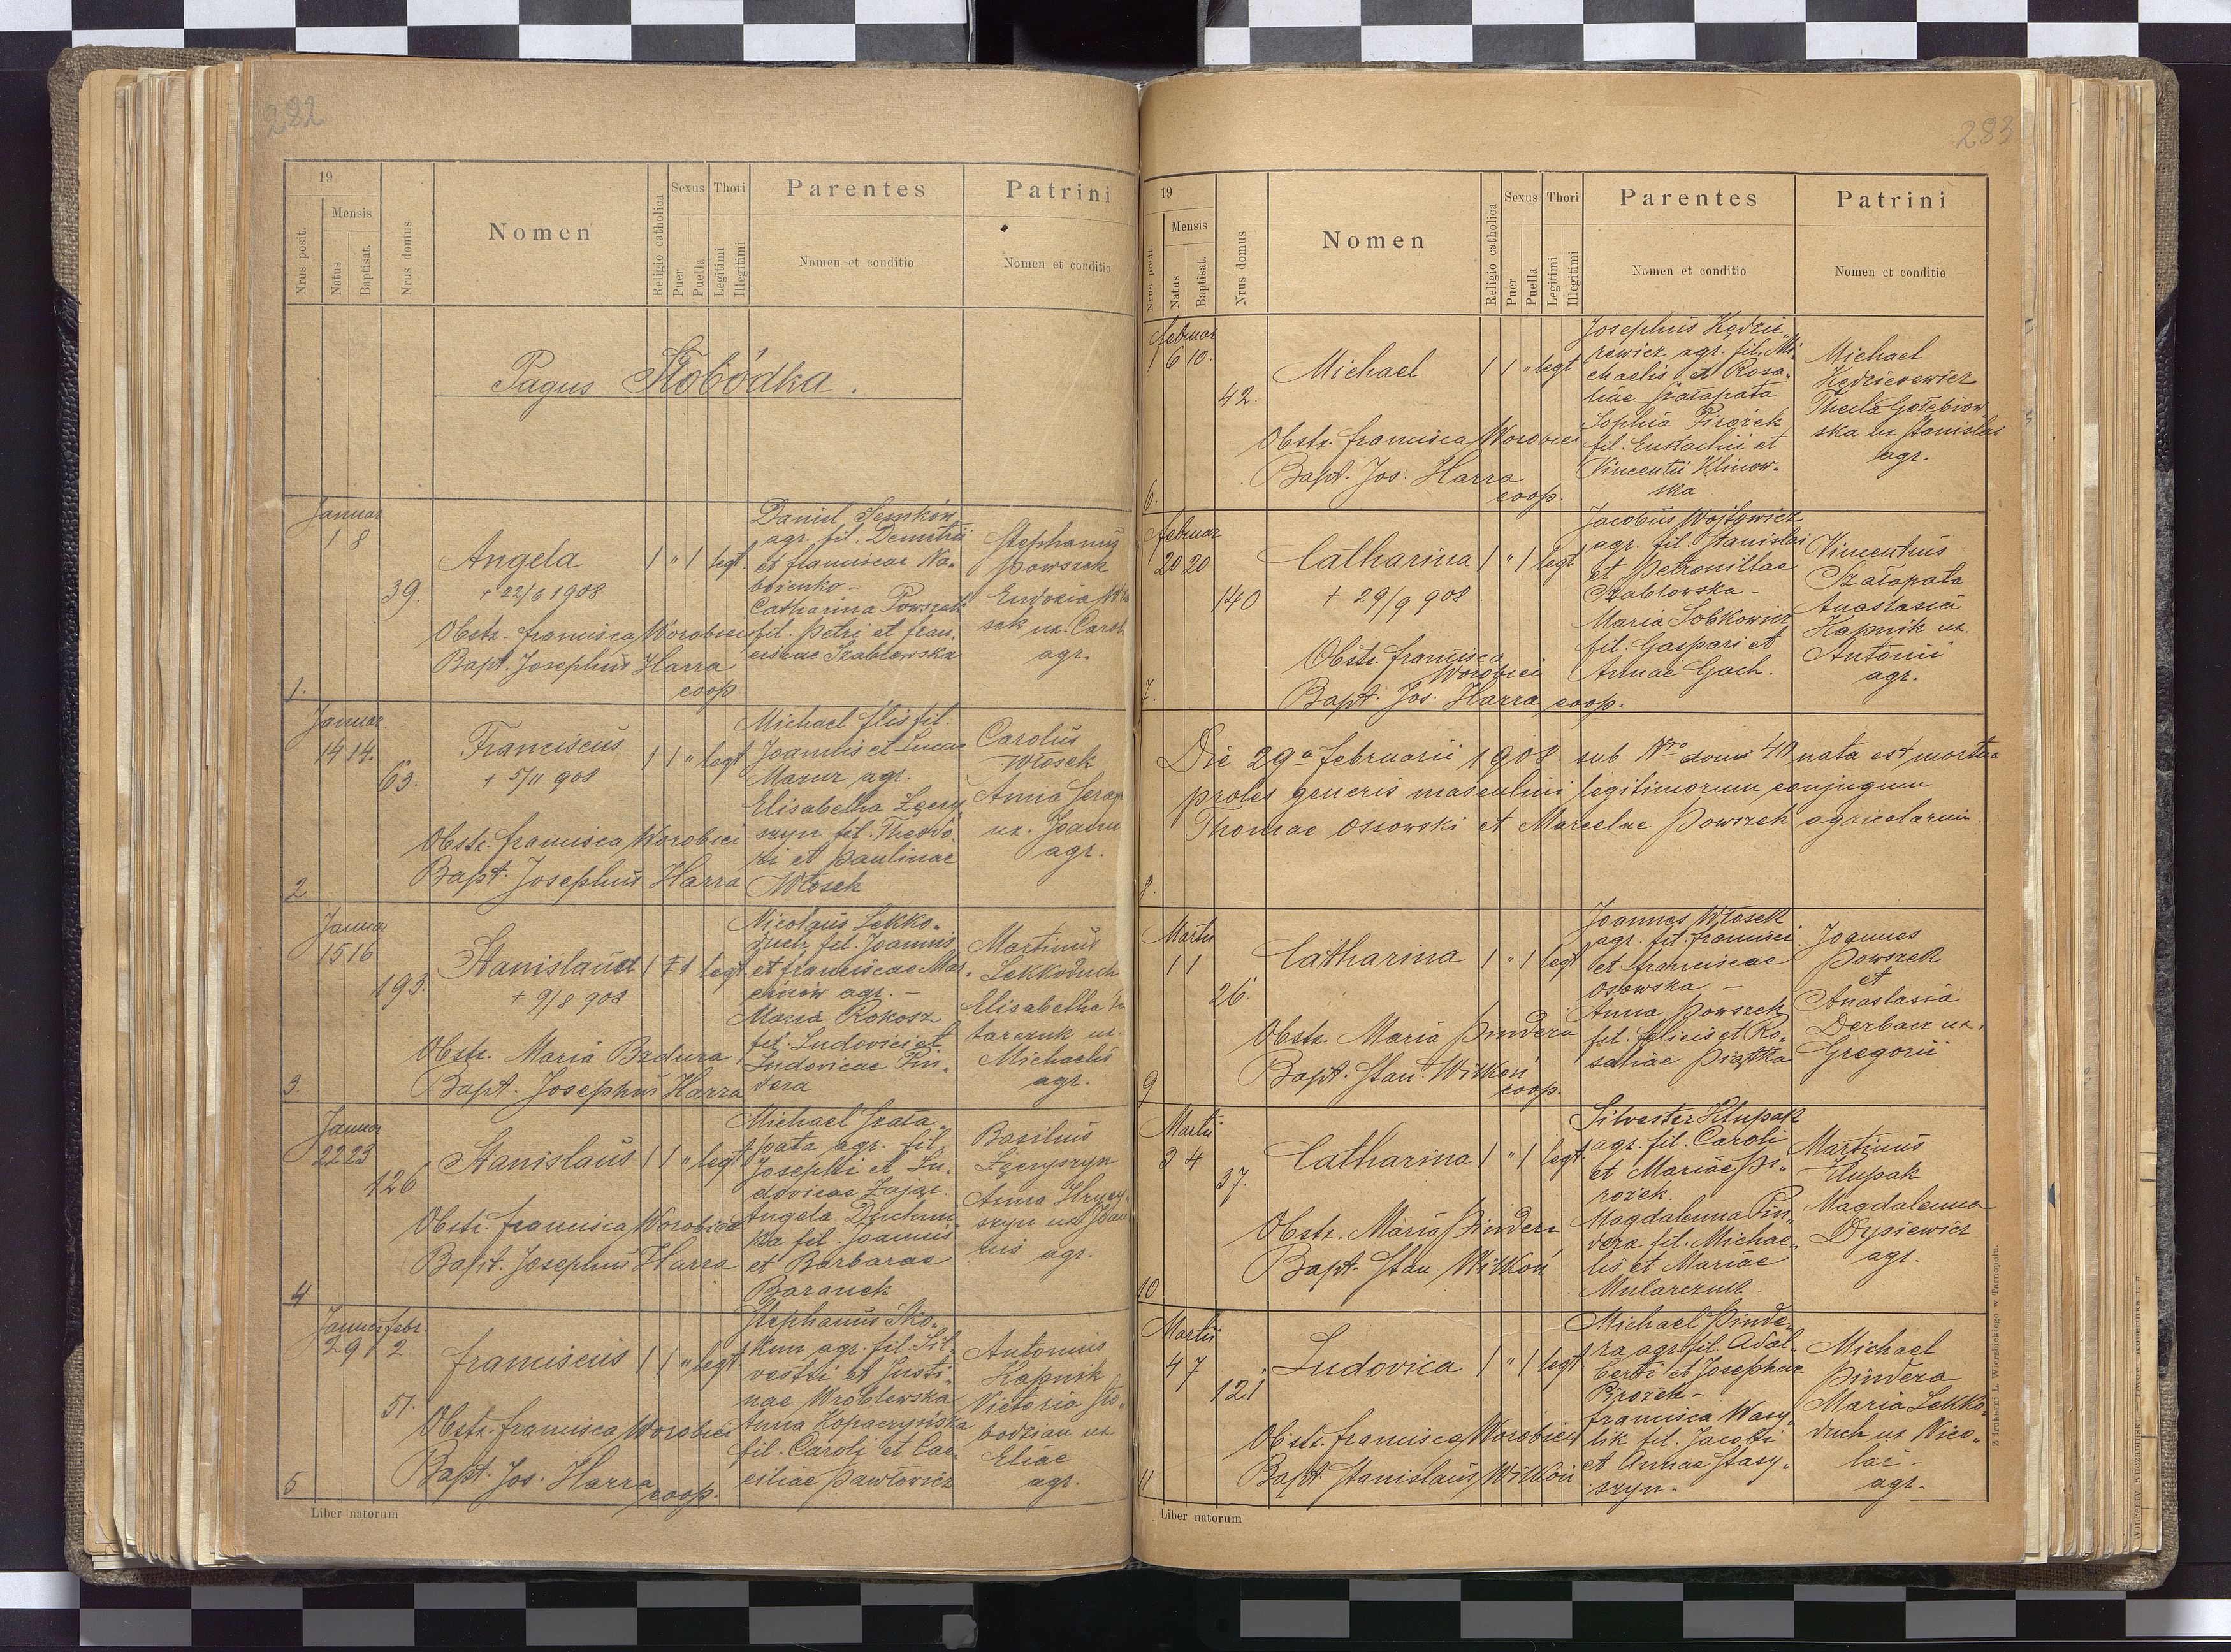 282
19
Mensis
Nrus posit.
Natus
Baptisat.
Nrus domus
Nomen
Religio catholica
Sexus
Puer
Puella
Thori
Legitimi
Illegitimi
Parentes
Nomen et conditio
Patrini
Nomen et conditio
Pagus Słobódka.
Januar
1 8
39.
Angela
+ 22/6 1908
1 " 1 legt.
Obstr. francisca Worobiei
Bapt. Josephus Harra
coop.
Daniel Semków
agr. fil. Demitrii
et franciscae
Catharina Powszek
fil. Petri et fran,
ciscae Szablowska
Stephanus
Powszek
Eudoxia
sek ux. Caroli
agr.
1.
Januar
14 14.
63.
Franciscus
+ 5/11 908
1 1 " legt
Obstr. francisca Worobiei
Bapt. Josephus Harra
Michael Flis fil.
Joannis et Luciae
Mazur agr.
Elisabetha Łęczy
szyn fil. Theodo,
ri et Paulinae
Włosek
Carolus
Włosek
Anna
ux. Joann
agr.
2
Januar
15 16
193.
Stanislaua
+ 9/8 908
1 1 legt
Obstr. Maria Bzdura
Bapt. Josephus Harra
Nicolaus Lekko,
duch, fil. Joannis
et franciscae Mar,
cinów agr. -
Maria Rokosz
fil. Ludovici et
Ludovicae Pin,
dera
Martinus
Lekkoduch
Elisabetha
tarczuk ux.
Michaelis
agr.
3.
Januar
22 23
126
Stanislaus
1 1 " legt
Obstr. francisca Worobiei
Bapt. Josephus Harra
Michael Szała,
pata agr. fil.
Josephi et Lu,
dovicae Zając.
Angela Duchni
fil. Joannis
et Barbarae
Baranek
Basilius
Łęczyszyn
Anna Hrycy,
szyn ux. Joan
nis agr.
4
Januar febr.
29 2
51.
franciscus
1 1 " legt
Obstr. francisca Worobiei
Bapt. Jos. Harra
coop.
Stephanus Sko,
kun agr. fil. Sil,
vestri et Justi,
nae Wroblewska
Anna Kopaczyńska
fil. Caroli et Cae,
ciliae Pawłowicz
Antonius
Kapnik
Victoria Sło,
bodzian ux
Eliae
agr.
5
Liber natorum
283
19
Mensis
Nrus posit.
Natus
Baptisat.
Nrus domus
Nomen
Religio catholica
Sexus
Puer
Puella
Thori
Legitimi
Illegitimi
Parentes
Nomen et conditio
Patrini
Nomen et conditio
februar
6 10.
42.
Michael
1 1 " legt
Obstr. francisca Worobiei
Bapt. Jos. Harra
coop.
Josephus Kędzie,
rewicz agr. fil. Mi,
chaelis et Rosa,
liae Szałapata
Sophia Pirożek
fil. Eustachii et
Vincentii Klinow,
ska
Michael
Kędzierewicz
Thecla Gołębiow
ska ux Stanislai
agr.
6.
februar
20 20
140
Catharina
+ 29/9 908
1 " 1 legt
Obstr. francisca
Worobiei
Bapt. Jos. Harra coop.
Jacobus Wojtowicz
agr. fil. Stanislai
et Petronillae
Szablowska -
Maria Sobkowicz
fil. Gaspari et
Annae Gach.
Vincentius
Szałapata
Anastasia
Kapnik ux.
Antonii
agr.
7.
Die 29ᵃ februarii 1908. sub Nro domus 40 nata est mortua
proles generis masculini legitimorum conjugum
Thomae Ossowski et Marcelae Powszek agricolarum.
8.
Martii
1 1
26.
Catharina
1 " 1 legt
Obstr. Maria Pindera
Bapt. Stan. Witkoń
coop.
Joannes Włosek
agr. fil. francisci
et franciscae
Osowska -
Anna Powszek
fil. felicis et Ro,
saliae Piątka
Joannes
Powszek
et
Anastasia
Derbacz ux,
Gregorii
9
Martii
3 4
37.
Catharina
1 " 1 legt.
Obstr. Maria Pindera
Bapt. Stan. Witkoń
Silvester Hłupak
agr. fil. Caroli
et Mariae Pi,
rożek.
Magdalenna Pin,
dera fil. Michae,
lis et Mariae
Mularczuk.
Martinus
Magdalenna
Dysiewicz
agr.
10
Martii
4 7
121
Ludovica
1 " 1 legt
Obstr. francisca Worobiei
Bapt. Stanislaus Witkoń
Michael Pinde,
ra agr. fil. Adal,
berti et Josephae
Pirożek -
francisca Wasy,
lik fil. Jacobi
et Annae Stasy,
szyn.
Michael
Pindera
Maria Lekko,
duch ux Nico,
lai -
agr.
11
Liber natorum
Z drukarni L. Wierzbickiego w Tarnopolu.